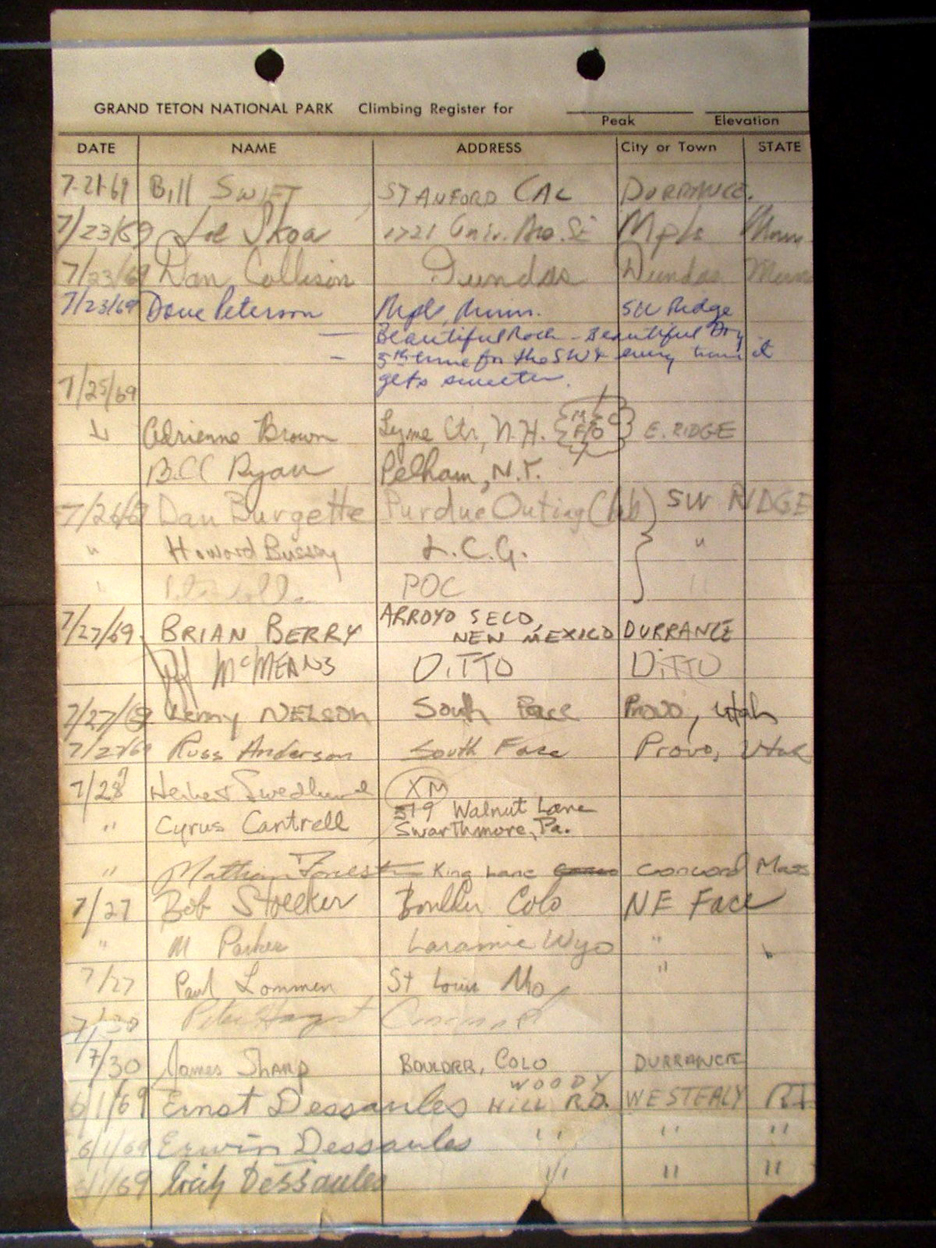 GRAND TETON NATIONAL PARK Climbing Register for
Peak Elevation
DATE NAME ADDRESS City or Town STATE
7-21-69 Bill SWIFT STANFORD CAL DURRANCE.
7/23/69 Joe Skoa 1721 Univ. Ave. SE Mpls Minn.
7/23/69 Dan Collison Dundas Dundas Minn
7/23/69 Dave Peterson Mpls, Minn. SW Ridge
— Beautiful Rock - Beautiful Day
- 5th time for the SW & every time it
gets sweeter.
7/25/69
Adrienne Brown Lyme Ctr, N.H. E. RIDGE
Bill Ryan Pelham, N.Y.
7/26/69 Dan Burgette Purdue Outing Club) SW RIDGE
" Howard Bussey L.C.G. "
" POC "
7/27/69 BRIAN BERRY ARROYO SECO,
NEW MEXICO DURRANCE
Jeff McMEANS DITTO DITTO
7/27/69 Lenny NELSON South Face Provo, Utah
7/27/69 Russ Anderson South Face Provo, Utah
7/28 Herbert Swedlund XM
" Cyrus Cantrell 519 Walnut Lane
Swarthmore, Pa.
" Forest King Lane Concord Mass
7/27 Bob Stoecker Boulder Colo NE Face
" M Parker Laramie Wyo " "
7/27 Paul Lommen St Louis Mo "
7/30 Peter
7/30 James Sharp BOULDER, COLO DURRANCE
WOODY
6/1/69 Ernst Dessaules HILL RD. WESTERLY RI
6/1/69 Erwin Dessaules " " "
6/1/69 Dessaules " " "